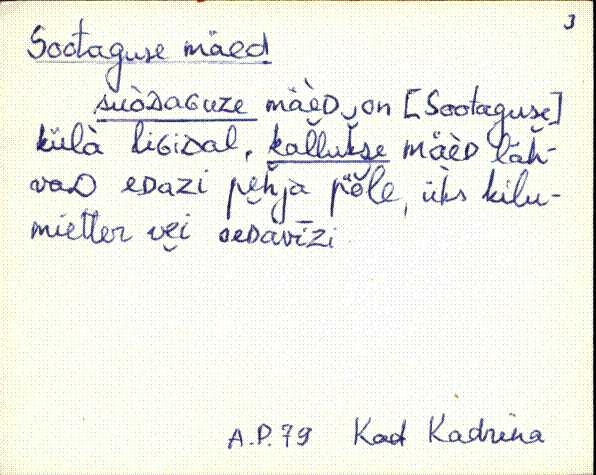 3
Sootaguse mäed
suòDaGuze mäèD on [Sootaguse]
külà liGiDal, kallukse mäèD läh-
vaD eDazi pehja põle, üks kilu-
mietter vei seDavīzi
A.P. 79 Kad Kadrina